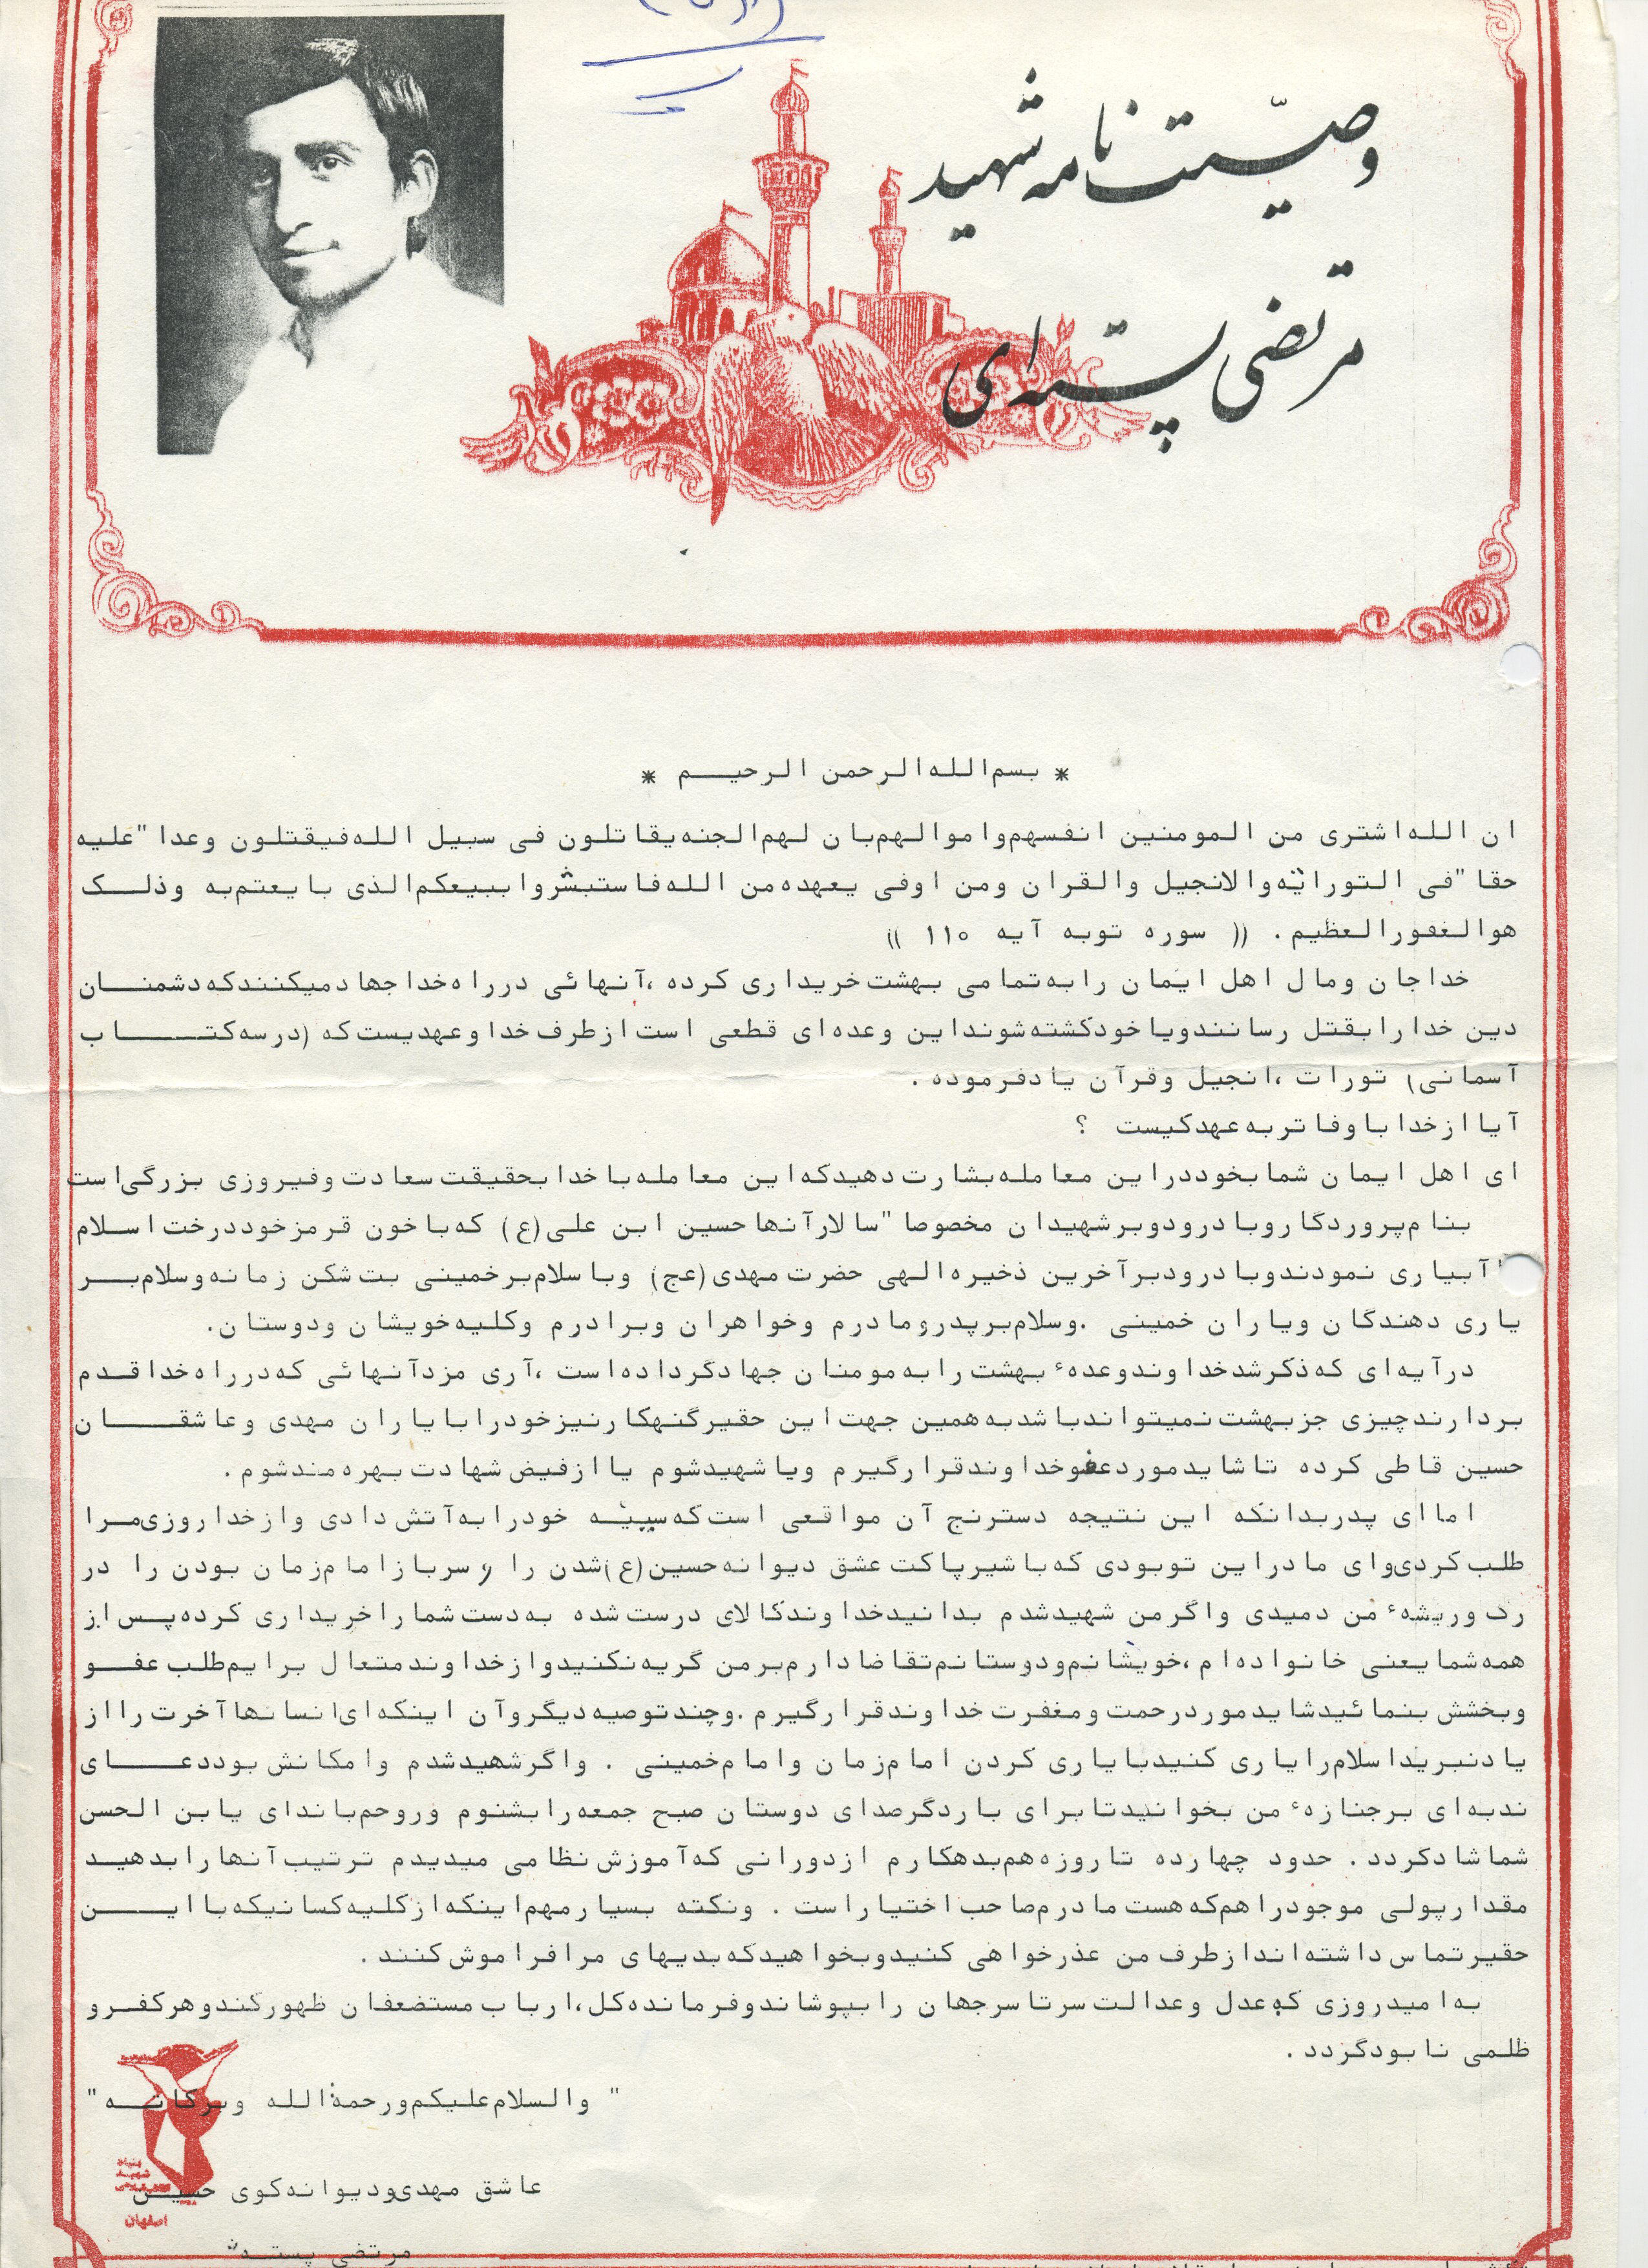 وصیّت نامه شهید
مرتضی پسته ای
* بسم الله الرحمن الرحیم *
ان الله اشتری من المومنین انفسهم و اموالهم بان لهم الجنه یقاتلون فی سبیل الله فیقتلون وعدا "علیه
حقا "فی التوراته والانجیل والقران ومن اوفی یعهده من الله فاستبشروا ببیعکم الذی بایعتم به وذلک
هوالغفورالعظیم . (( سوره توبه آیه ۱۱۰ ))
خدا جان ومال اهل ایمان را به تمامی بهشت خریداری کرده ،آنهائی درراه خدا جهاد میکنند که دشمنان
دین خدا را بقتل رسانند ویا خود کشته شوند این وعده ای قطعی است از طرف خدا و عهدیست که (در سه کتاب
آسمانی) تورات ،انجیل وقرآن یاد فرموده .
آیا از خدا با وفاتر به عهد کیست ؟
ای اهل ایمان شما بخود در این معامله بشارت دهید که این معامله با خدا بحقیقت سعادت وفیروزی بزرگی است
بنام پروردگار و با درود و بر شهیدان مخصوصا "سالار آنها حسین ابن علی (ع) که با خون قرمز خود درخت اسلام
آبیاری نمودند و با درود بر آخرین ذخیره الهی حضرت مهدی (عج) وبا سلام بر خمینی بت شکن زمانه و سلام بر
یاری دهندگان ویاران خمینی .وسلام بر پدر و مادرم وخواهران وبرادرم وکلیه خویشان ودوستان.
در آیه ای که ذکر شد خداوند وعدهٔ بهشت را به مومنان جهادگر داده است ،آری مزد آنهائی که در راه خدا قدم
بردارند چیزی جز بهشت نمیتواند باشد به همین جهت این حقیر گنهکار نیز خود را با یاران مهدی وعاشقان
حسین قاطی کرده تا شاید مورد عفو خداوند قرار گیرم ویا شهید شوم یا از فیض شهادت بهره مند شوم .
اما ای پدر بدانکه این نتیجه دسترنج آن مواقعی است که سینه خود را به آتش دادی واز خدا روزی مرا
طلب کردی وای مادر این تو بودی که با شیر پاکت عشق دیوانه حسین (ع) شدن را و سرباز امام زمان بودن را در
رگ وریشهٔ من دمیدی واگر من شهید شدم بدانید خداوند کالای درست شده به دست شما را خریداری کرده پس از
همه شما یعنی خانواده ام ،خویشانم و دوستانم تقاضا دارم بر من گریه نکنید واز خداوند متعال برایم طلب عفو
وبخشش بنمائید شاید مورد رحمت ومغفرت خداوند قرار گیرم .وچند توصیه دیگر وآن اینکه ای انسانها آخرت را از
یاد نبرید اسلام را یاری کنید با یاری کردن امام زمان وامام خمینی . واگر شهید شدم وامکانش بود دعای
ندبه ای بر جنازهٔ من بخوانید تا برای بار دگر صدای دوستان صبح جمعه را بشنوم وروحم با ندای یابن الحسن
شما شاد گردد . حدود چهارده تا روزه هم بدهکارم از دورانی که آموزش نظامی میدیدم ترتیب آنها را بدهید
مقدار پولی موجود را هم که هست مادرم صاحب اختیار است . ونکته بسیار مهم اینکه از کلیه کسانیکه با این
حقیر تماس داشته اند از طرف من عذرخواهی کنید و بخواهید که بدیهای مرا فراموش کنند .
به امید روزی که عدل وعدالت سرتاسر جهان را بپوشاند وفرمانده کل ،ارباب مستضعفان ظهور کند وهر کفر و
ظلمی نابود گردد .
" والسلام علیکم ورحمة الله وبرکاته "
عاشق مهدی و دیوانه کوی حسین
مرتضی پسته
بنیاد
شهید
انقلاب اسلامی
اصفهان